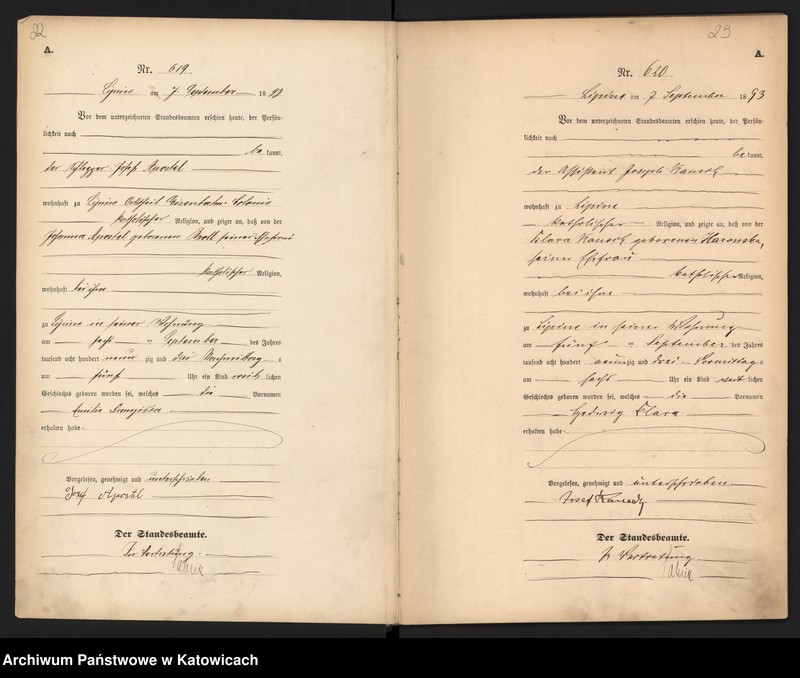 22
A.
Nr. 619
Lipine am 7. September 1893
Vor dem unterzeichneten Standesbeamten erschien heute, der Persön-
lichkeit nach
be kannt,
der Josef Apostel
wohnhaft zu Lipine Colonie
katholischer Religion, und zeigte an, daß von der
Johanna Apostel geborenen seiner Ehefrau
katholischer Religion,
wohnhaft bei ihm
zu Lipine in seiner Wohnung
am September des Jahres
tausend acht hundert neun zig und drei Vormittag s
um fünf Uhr ein Kind weib lichen
Geschlechts geboren worden sei, welches die Vornamen
Emilie Franziska
erhalten habe.
Vorgelesen, genehmigt und unterschrieben
Josef Apostel
Der Standesbeamte.
In Vertretung.
23
A.
Nr. 620
Lipine am 7 September 1893
Vor dem unterzeichneten Standesbeamten erschien heute, der Persön-
lichkeit nach
be kannt,
der Assistent Joseph
wohnhaft zu Lipine
katholischer Religion, und zeigte an, daß von der
Klara geborenen
seiner Ehefrau
katholischer Religion,
wohnhaft bei ihm
zu Lipine in seiner Wohnung
am fünf September des Jahres
tausend acht hundert neun zig und drei Vormittag s
um sechs Uhr ein Kind weib lichen
Geschlechts geboren worden sei, welches die Vornamen
Hedwig Klara
erhalten habe.
Vorgelesen, genehmigt und unterschrieben
Josef
Der Standesbeamte.
In Vertretung
Archiwum Państwowe w Katowicach